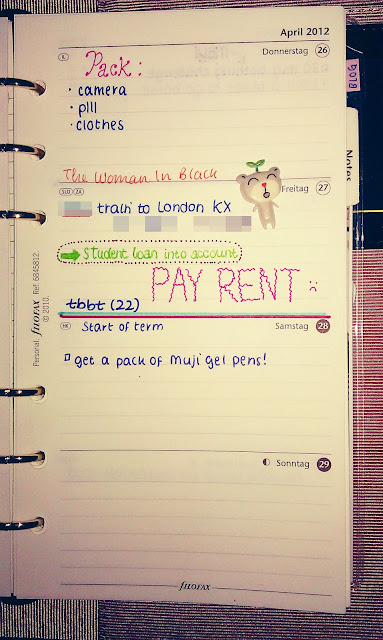 April 2012
Donnerstag 26
Pack:
· camera
· plll
· clothes
The Woman In Black
Freitag 27
train to London KX
Student loan into account
PAY RENT :
tbbt (22)
HR Start of term
Samstag 28
get a pack of muji gel pens!
Sonntag 29
FILOFAX
Personal. FILOFAX Ref. 6845812.
© 2010.
Notes